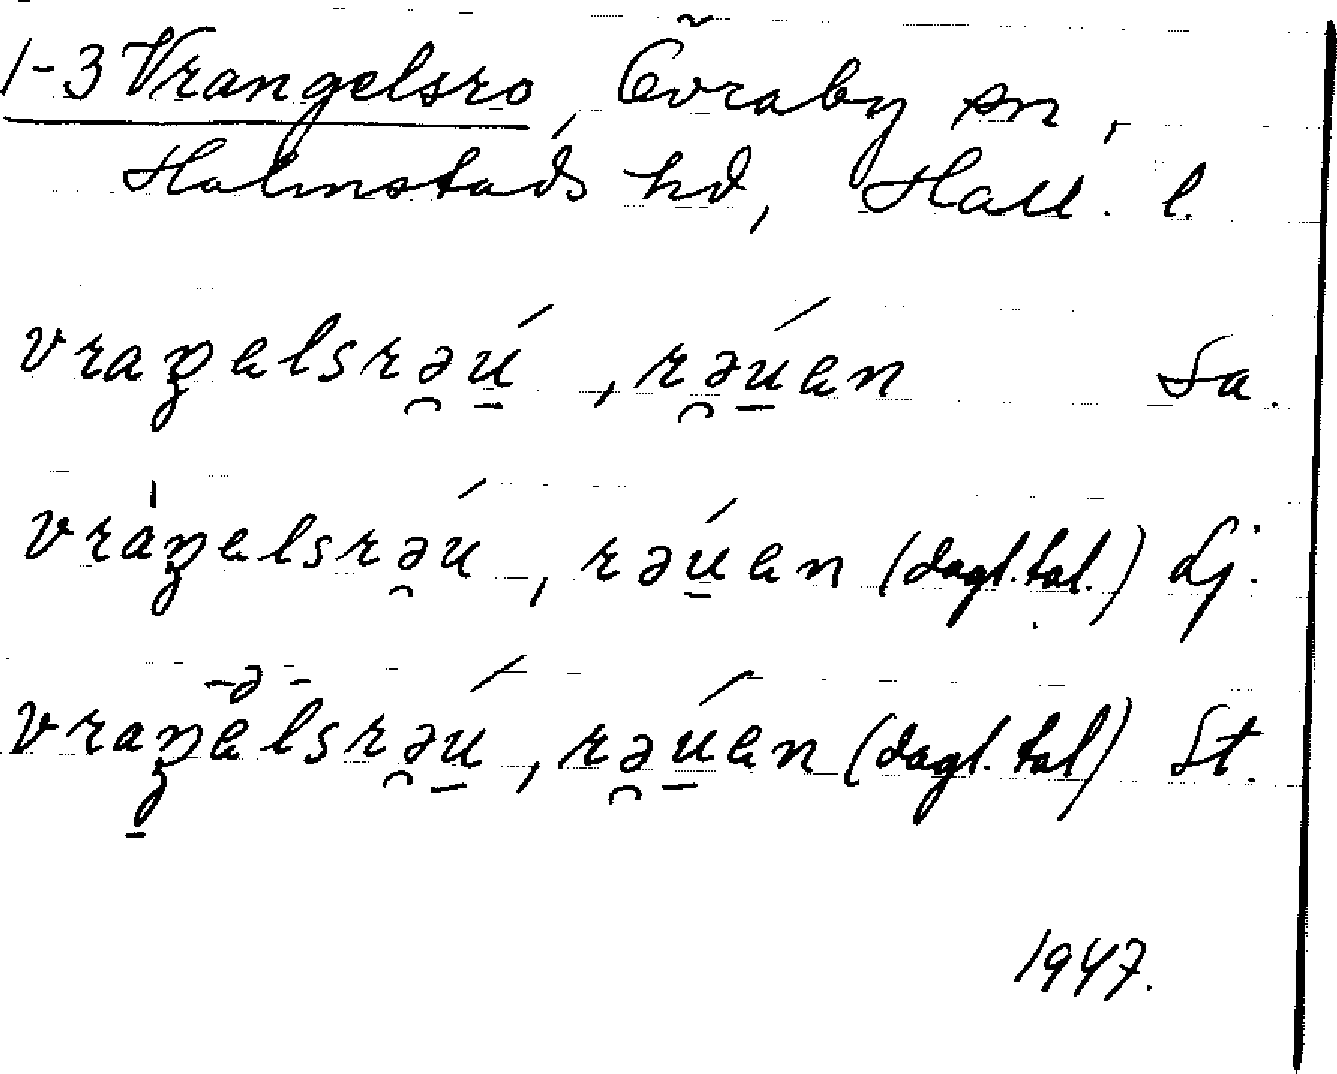 1-3 Vrangelsro, Övraby sn,
Halmstads hd, Hall. l.
vraŋelsrəú, rəúen Sa.
vráŋelsrəú, rəúen (dagl. tal.) Lj.
-ə-
vraŋelsrəú, rəúen (dagl. tal) St.
1947.